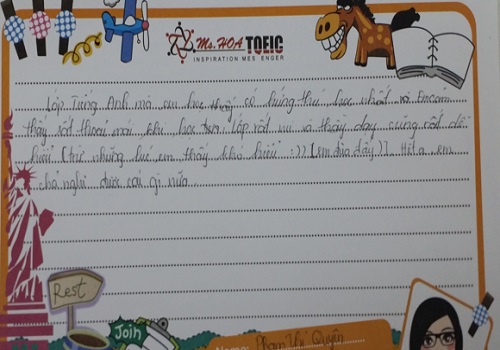 Ms. HOA TOEIC
INSPIRATION MESSENGER
Lớp Tiếng Anh mà em học thấy có hứng thú học nhất vì Em cảm
thấy rất thoải mái khi học tại lớp rất vui và thầy dạy cũng rất dễ
hiểu [trừ những lúc em thấy khó hiểu :)) [em đùa đấy]]. Hết ạ em
chả nghĩ được cái gì nữa.
Rest
Join
Name: Phạm Thị Quyên